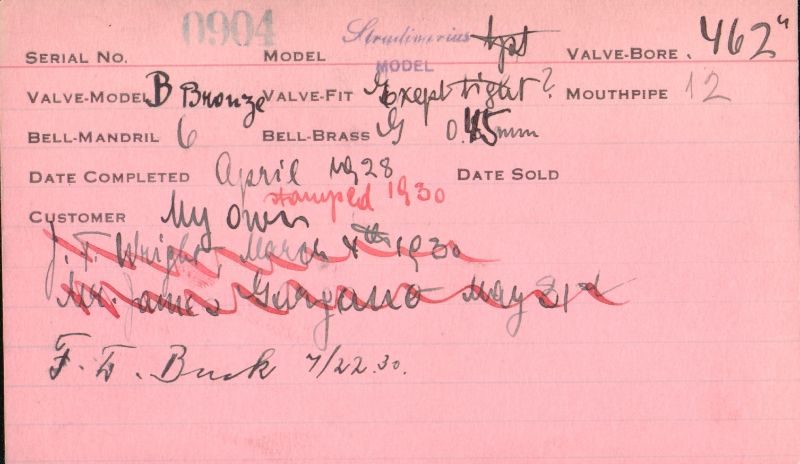 SERIAL NO. 0904 MODEL Stradivarius MODEL tpt VALVE-BORE. 462"
VALVE-MODEL B Bronze VALVE-FIT G Exept tight? MOUTHPIPE 12
BELL-MANDRIL 6 BELL-BRASS G 0.45mm
DATE COMPLETED April 1928 DATE SOLD
stamped 1930
CUSTOMER My own
J. F. Wright, March 4th 1930
Mr. James Gurgano May 31st
F. W. Buck 7/22.30.